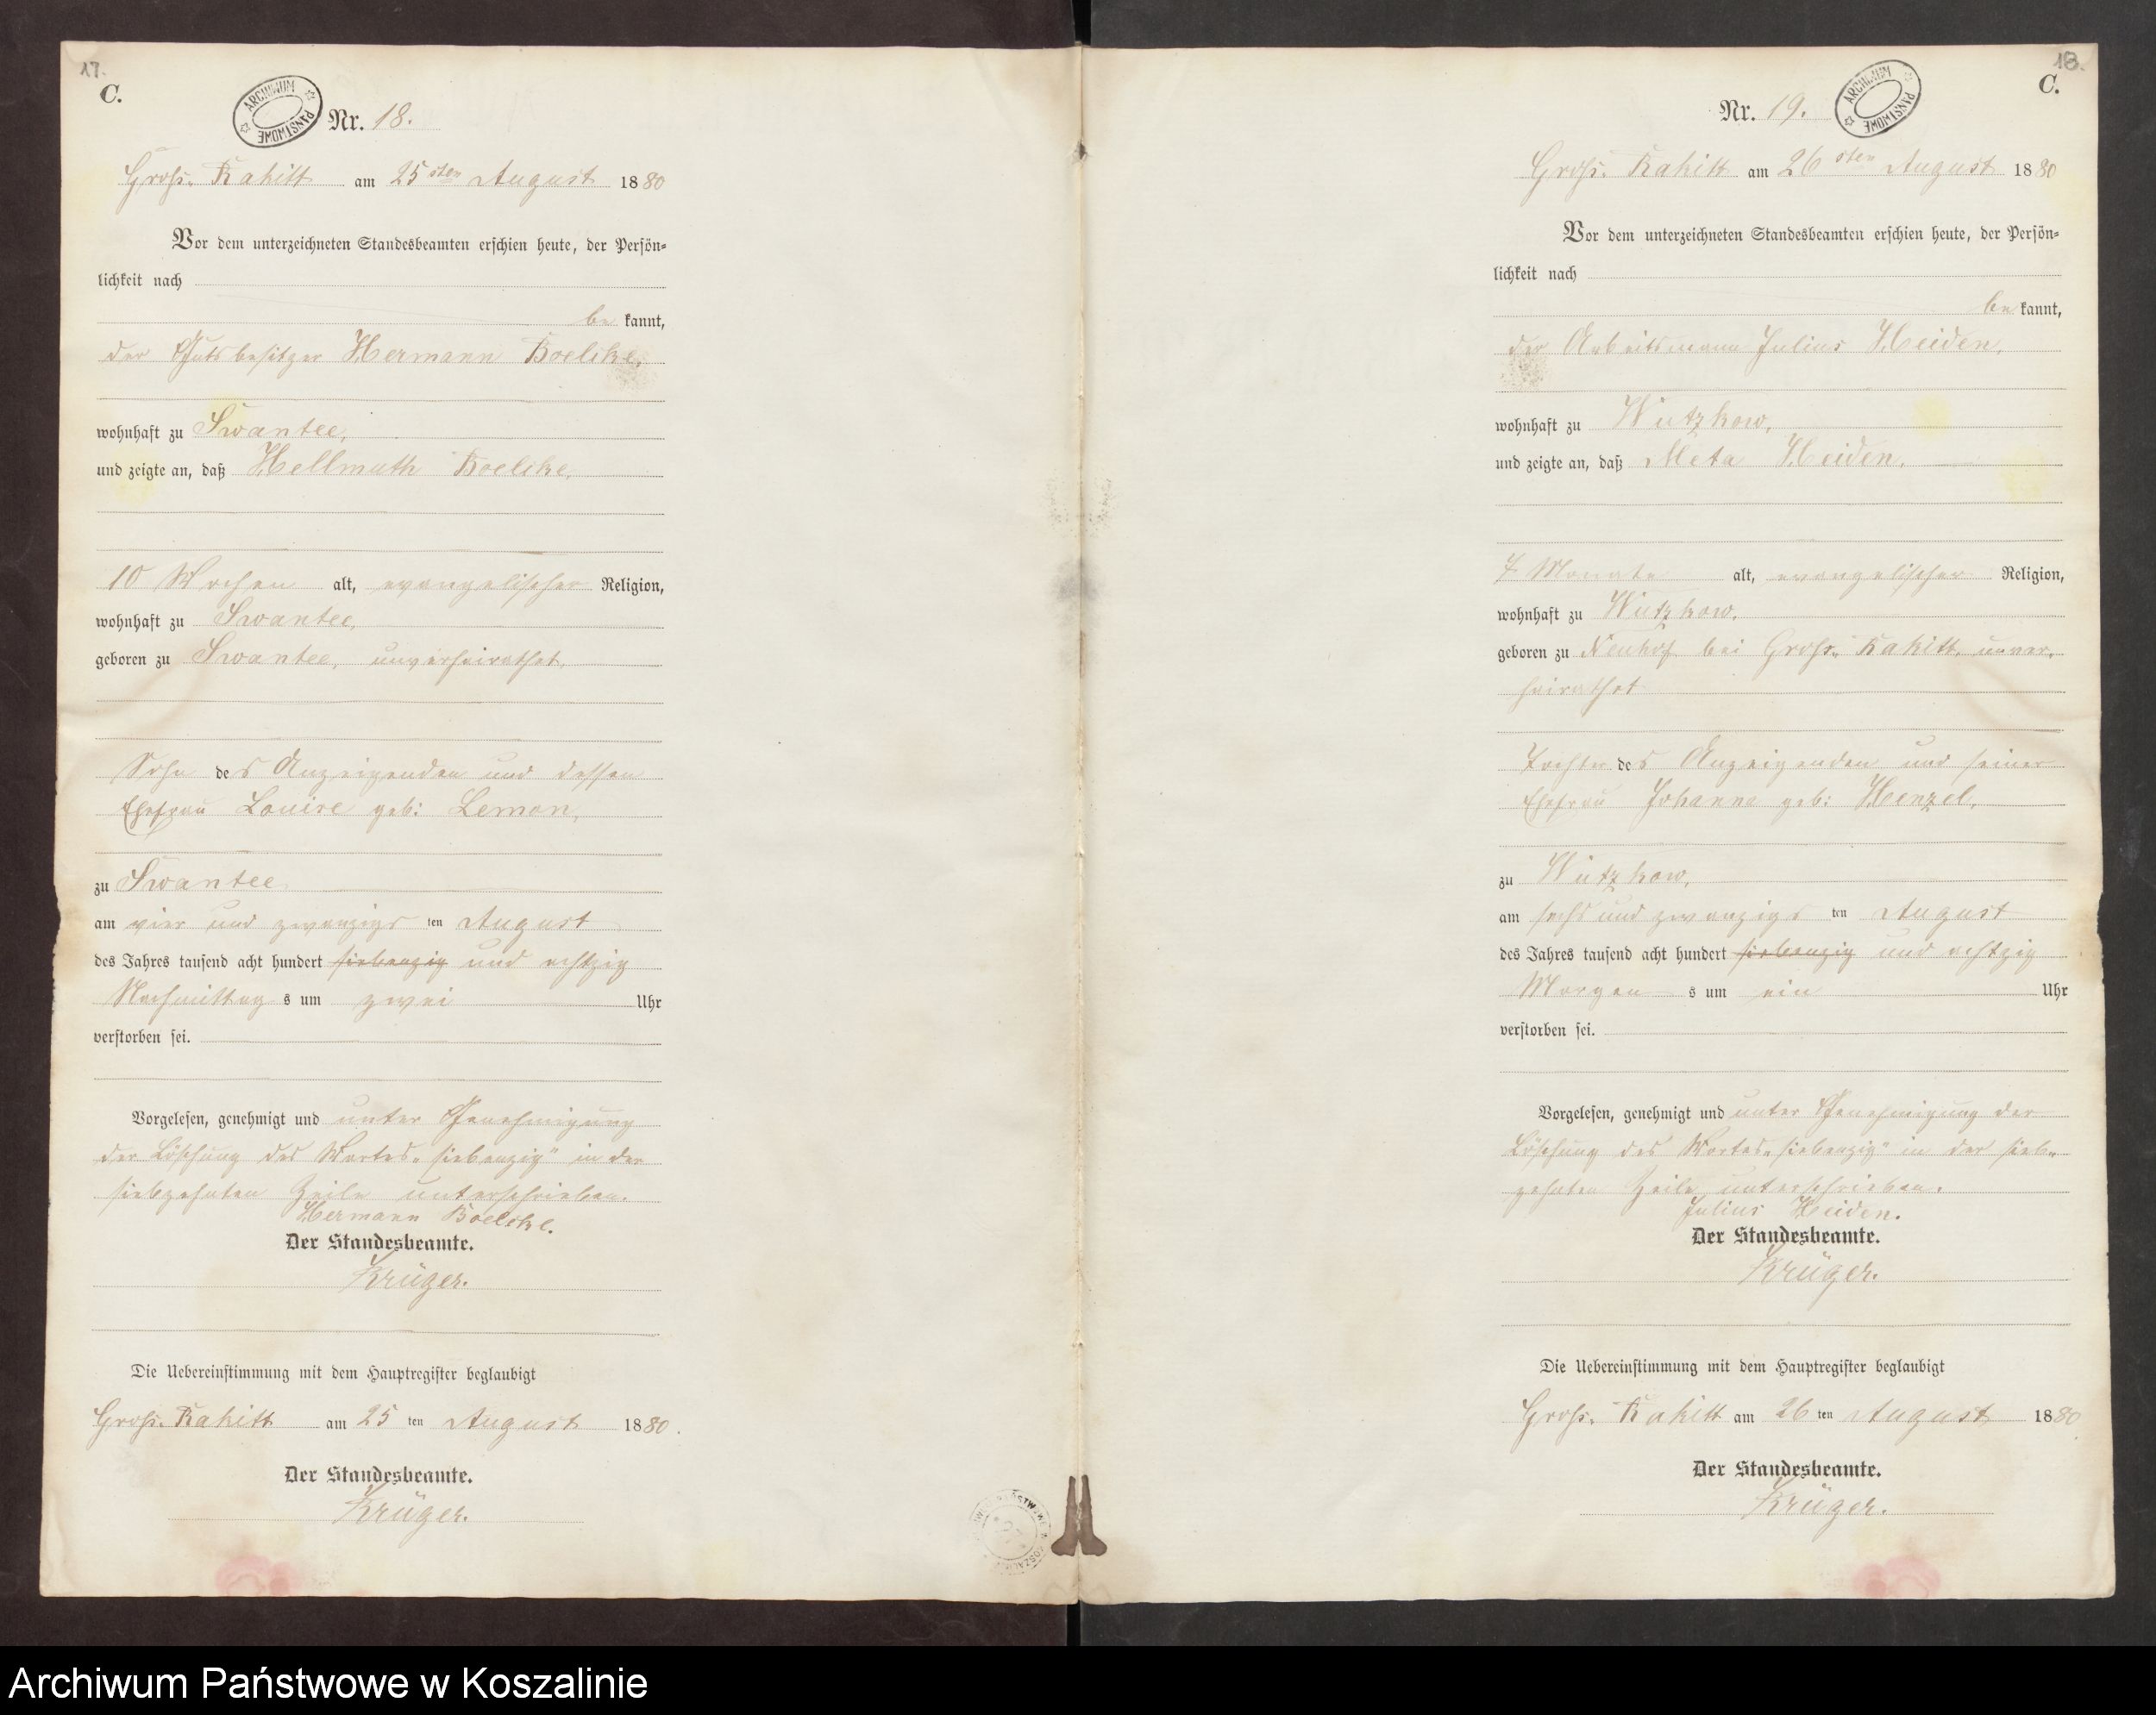 17.
C.
ARCHIWUM PAŃSTWOWE
Nr. 18.
Groß-Rakitt am 25sten August 1880
Vor dem unterzeichneten Standesbeamten erschien heute, der Persön-
lichkeit nach
be kannt,
der Gutsbesitzer Hermann Boelcke,
wohnhaft zu Swantee,
und zeigte an, daß Hellmuth Boelcke,
10 Wochen alt, evangelischer Religion,
wohnhaft zu Swantee,
geboren zu Swantee, unverheirathet,
Sohn des Anzeigenden und dessen
Ehefrau Louise geb: Lemon,
zu Swantee
am vier und zwanzigs ten August
des Jahres tausend acht hundert siebenzig und achtzig
Nachmittag s um zwei Uhr
verstorben sei.
Vorgelesen, genehmigt und unter Genehmigung
der Löschung des Wortes „siebenzig" in der
siebzehnten Zeile unterschrieben.
Hermann Boelcke.
Der Standesbeamte.
Krüger.
Die Uebereinstimmung mit dem Hauptregister beglaubigt
Groß-Rakitt am 25 ten August 1880.
Der Standesbeamte.
Krüger.
18.
C.
Nr. 19.
ARCHIWUM PAŃSTWOWE
Groß-Rakitt am 26sten August 1880
Vor dem unterzeichneten Standesbeamten erschien heute, der Persön-
lichkeit nach
be kannt,
der Arbeitsmann Julius Heiden,
wohnhaft zu Wutzkow,
und zeigte an, daß Meta Heiden,
4 Monate alt, evangelischer Religion,
wohnhaft zu Wutzkow,
geboren zu Neuhof bei Groß-Rakitt, unver-
heirathet
Tochter des Anzeigenden und seiner
Ehefrau Johanna geb: Henzel,
zu Wutzkow,
am sechs und zwanzigs ten August
des Jahres tausend acht hundert siebenzig und achtzig
Morgen s um ein Uhr
verstorben sei.
Vorgelesen, genehmigt und unter Genehmigung der
Löschung des Wortes „siebenzig" in der sieb-
zehnten Zeile unterschrieben.
Julius Heiden.
Der Standesbeamte.
Krüger.
Die Uebereinstimmung mit dem Hauptregister beglaubigt
Groß-Rakitt am 26 ten August 1880
Der Standesbeamte.
Krüger.
Archiwum Państwowe w Koszalinie